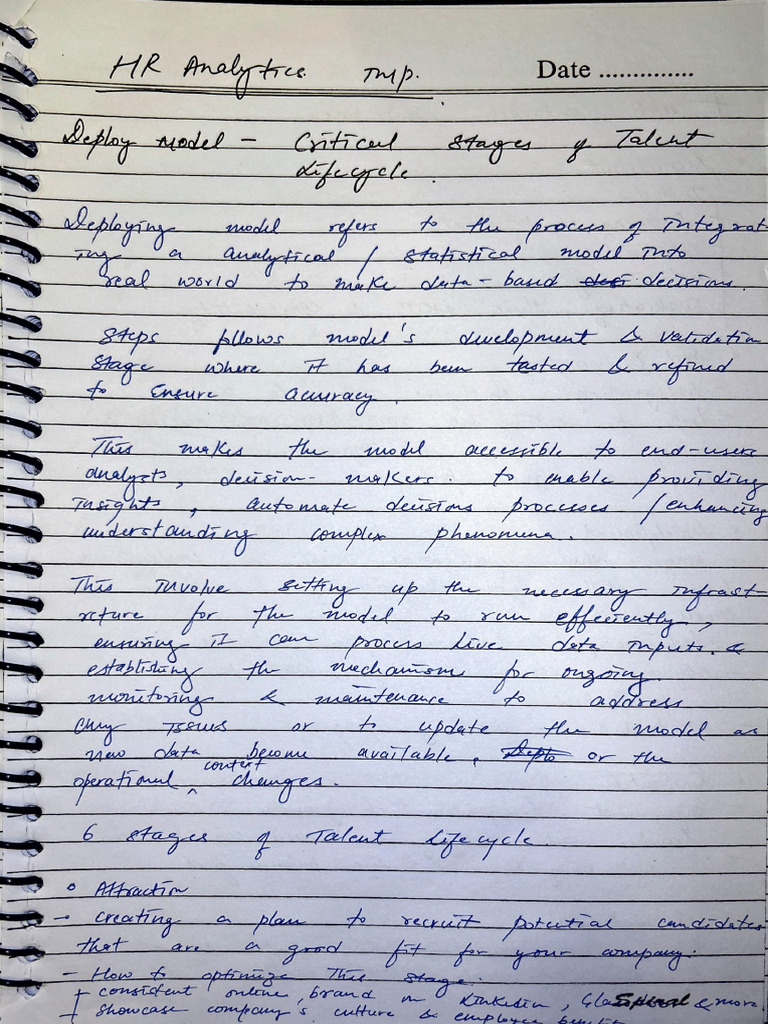 HR Analytics Imp.
Date ..............
Deploy model - Critical stages of Talent
Lifecycle.
Deploying model refers to the process of integrat-
ing a analytical / statistical model into
real world to make data-based decisions.
Steps follows model's development & validation
stage where it has been tested & refined
to ensure accuracy.
This makes the model accessible to end-users
analysts, decision-makers. to enable providing
insights, automate decisions processes / enhancing
understanding complex phenomena.
This involve setting up the necessary infrast-
rcture for the model to run effeciently,
ensuring it can process live data inputs. &
establishing the mechanism for ongoing
monitoring & maintenance to address
any issues or to update the model as
new data become available, or the
operational context changes.
6 stages of Talent Lifecycle.
Attraction
→ creating a plan to recruit potential candidates
that are a good fit for your company.
- How to optimize this stage.
consistent online, brand on Linkedin, & more
showcase company's culture & employee